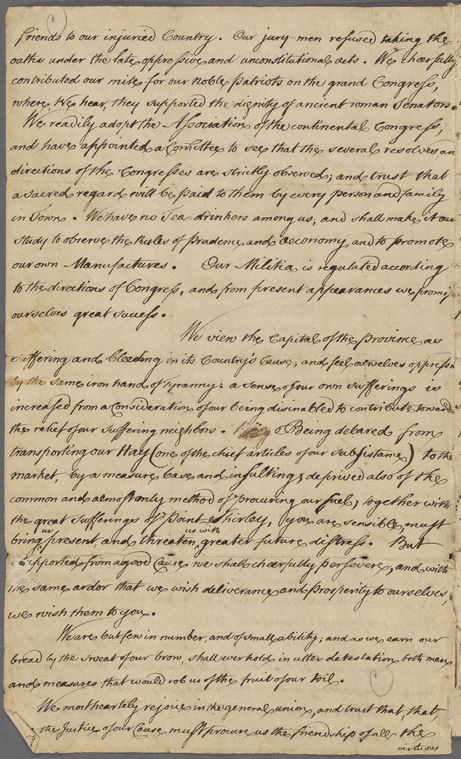 friends to our injuried Country. Our jury men refused taking the
oaths under the late oppressive and unconstitutional acts. We chearfully
contributed our mite for our noble Patriots on the grand Congress,
where, We hear, they supported the dignity of ancient roman Senators.
We readily adopt the Association of the continental Congress,
and have appointed a Committee to see that the several resolves an
directions of the Congresses are strictly observed; and trust that
a sacred regard will be paid to them by every person and family
in Town. We have no Tea drinkers among us, and shall make it our
study to observe the Rules of Prudence and œconomy, and to promote
our own Manufactures. Our Militia is regulated according
to the directions of Congress, and from present appearances we promis
ourselves great sucess.
We view the Capital of the Province as
suffering and bleeding in its Country's Cause, and feel ourselves oppress
by the same iron hand of Tyranny: a sense of our own sufferings is
increased from a Consideration of our being disinabled to contribute toward
the relief of our suffering neighbors. Being debared from
transporting our Hay (one of the chief articles of our subsistance) to the
market, by a measure base and insulting; deprived also of the
common and almost only method of procuring our fuel; together with
the great sufferings of Point-Shirley, (you are sensible) must
bring us present, and threaten us with greater future distress. But
supported from a good Cause we shall chearfully persevere; and with
the same ardor that we wish deliverance and Prosperity to ourselves,
we wish them to you.
We are but few in number, and of small ability; and as we earn our
bread by the sweat of our brow, shall ever hold in utter detestation both men
and measures that would rob us of the fruit of our toil.
We most heartely rejoice in the general union, and trust that, that,
the Justice of our Cause must procure us the friendship of all the
virtuous